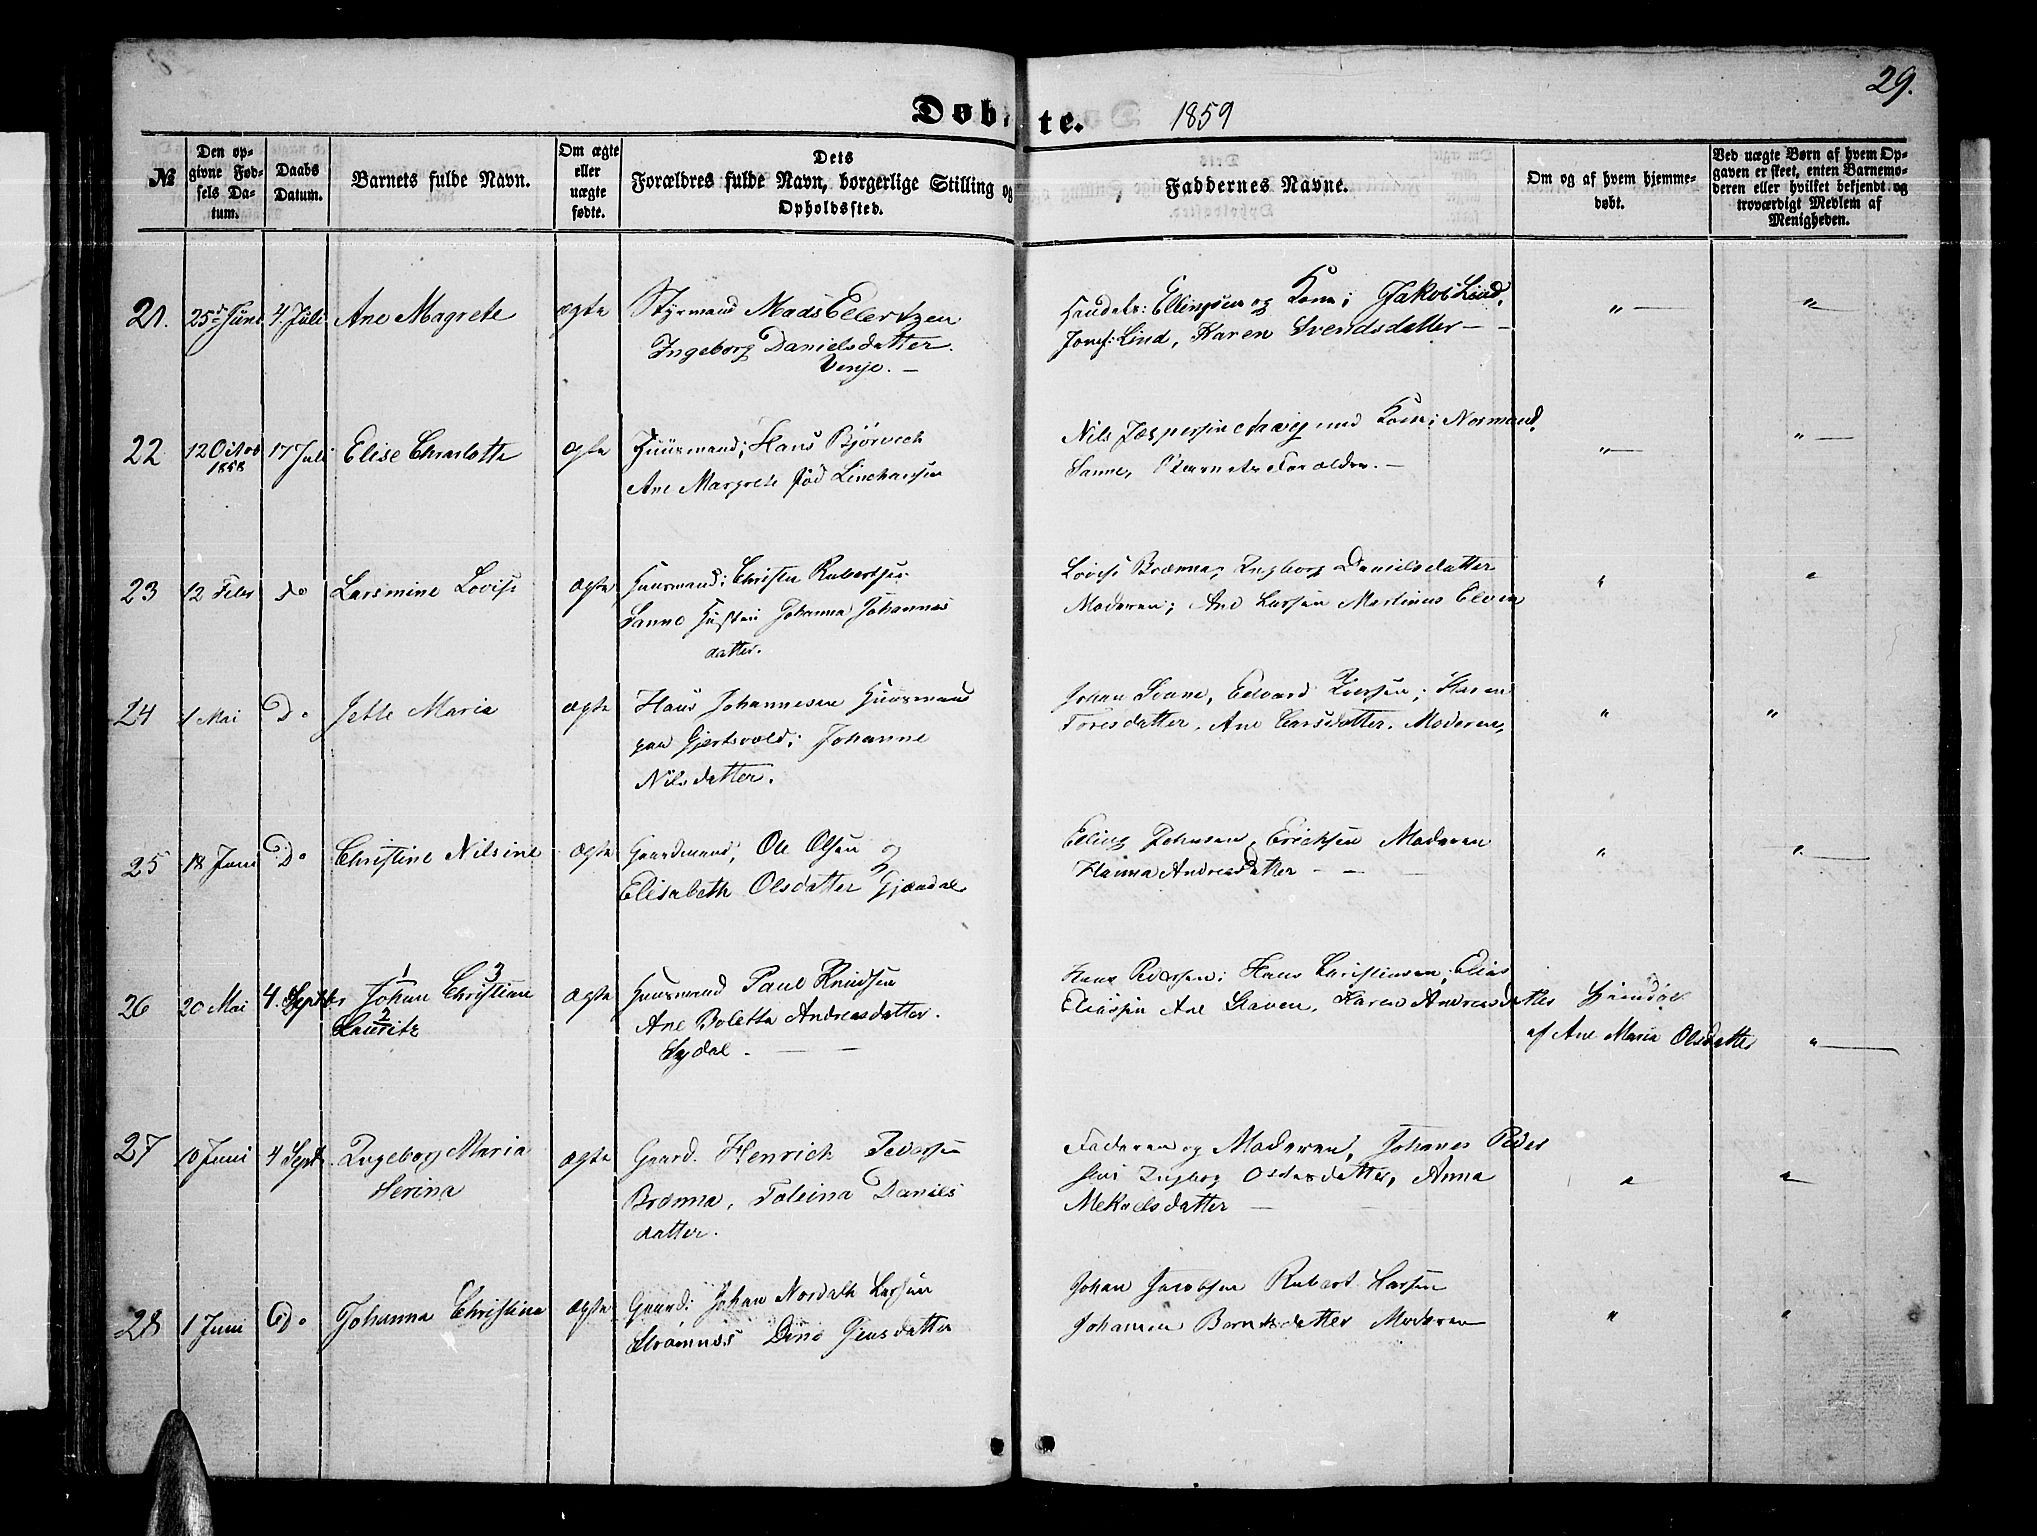 29.
Døbte. 1859
№
Den op-
givne Fød-
sels Da-
tum.
Daabs
Datum.
Barnets fulde Navn.
Om ægte
eller
uægte
fødte.
Dets
Forældres fulde Navn, borgerlige Stilling og
Opholdssted.
Faddernes Navne.
Om og af hvem hjemme-
døbt.
Ved uægte Børn af hvem Op-
gaven er skeet, enten Barnemo-
deren eller hvilket bekjendt og
troværdigt Medlem af
Menigheden.
21. 25 Juni 4. Juli Ane Magrete ægte Styrmand Mads Eilertzen
Ingeborg Danielsdatter
Venje. —
Handels: Ellingsen og Kone; Jakob Lind,
Josef: Lind, Karen Svendsdatter — —
" — "
22 12 Octob 17 Juli Elise Charlotte ægte Huusmand; Hans Bjørvech
1858
Ane Margrete fød
Nils Jespersen med Kone; Normand
Sanne, Barnets Forældre. —
" — " —
23 12 Febr Do Larsmine Lovise ægte Huusmand; Christen Rubertsen
Sanne Johanna Johannes
datter.
Lovise Brænna, Ingborg Danielsdatter
Moderen; Ane Larsen Martinus
" "
24 1 Mai Do Jette Maria ægte Hans Johannesen Huusmand
paa Gjertsvold; Johanne
Nilsdatter.
Johan Svane, Edvard Iversen; Karen
Toresdatter, Ane Larsdatter. Moderen,
" "
25 18 Juni Do Christine Nilsine ægte Gaardmand; Ole Olsen og
Elisabeth Olsdatter
Elling Johnsen, Erichsen Moderen
Hanna Andreasdatter — — —
" " —
26 20 Mai 4. Septbr Johan 1 Christian 3 ægte Huusmand Paul Knudsen
Lauritz 2
Ane Boletta Andreasdatter.
Sydal — —
Hans Pedersen; Hans Christiansen, Elias
Eliassen Ane Karen Andreasdatter Hjemdøbt
af Ane Maria Olsdatter " —
27 10 Juni 4 Septb Ingeborg Maria ægte Gaard. Henrich Pedersen
Serina
Brænna, Daniels
datter.
Faderen og Moderen, Johanes Peder
sen Ingborg Anna
Mekaelsdatter — —
" "
28 1 Juni Do Johanna Christina ægte Gaard; Johan Nordahl Larsen
Dina Jensdatter
Johan Jacobsen Rubert Larsen
Johanna Berntsdatter Moderen
" "